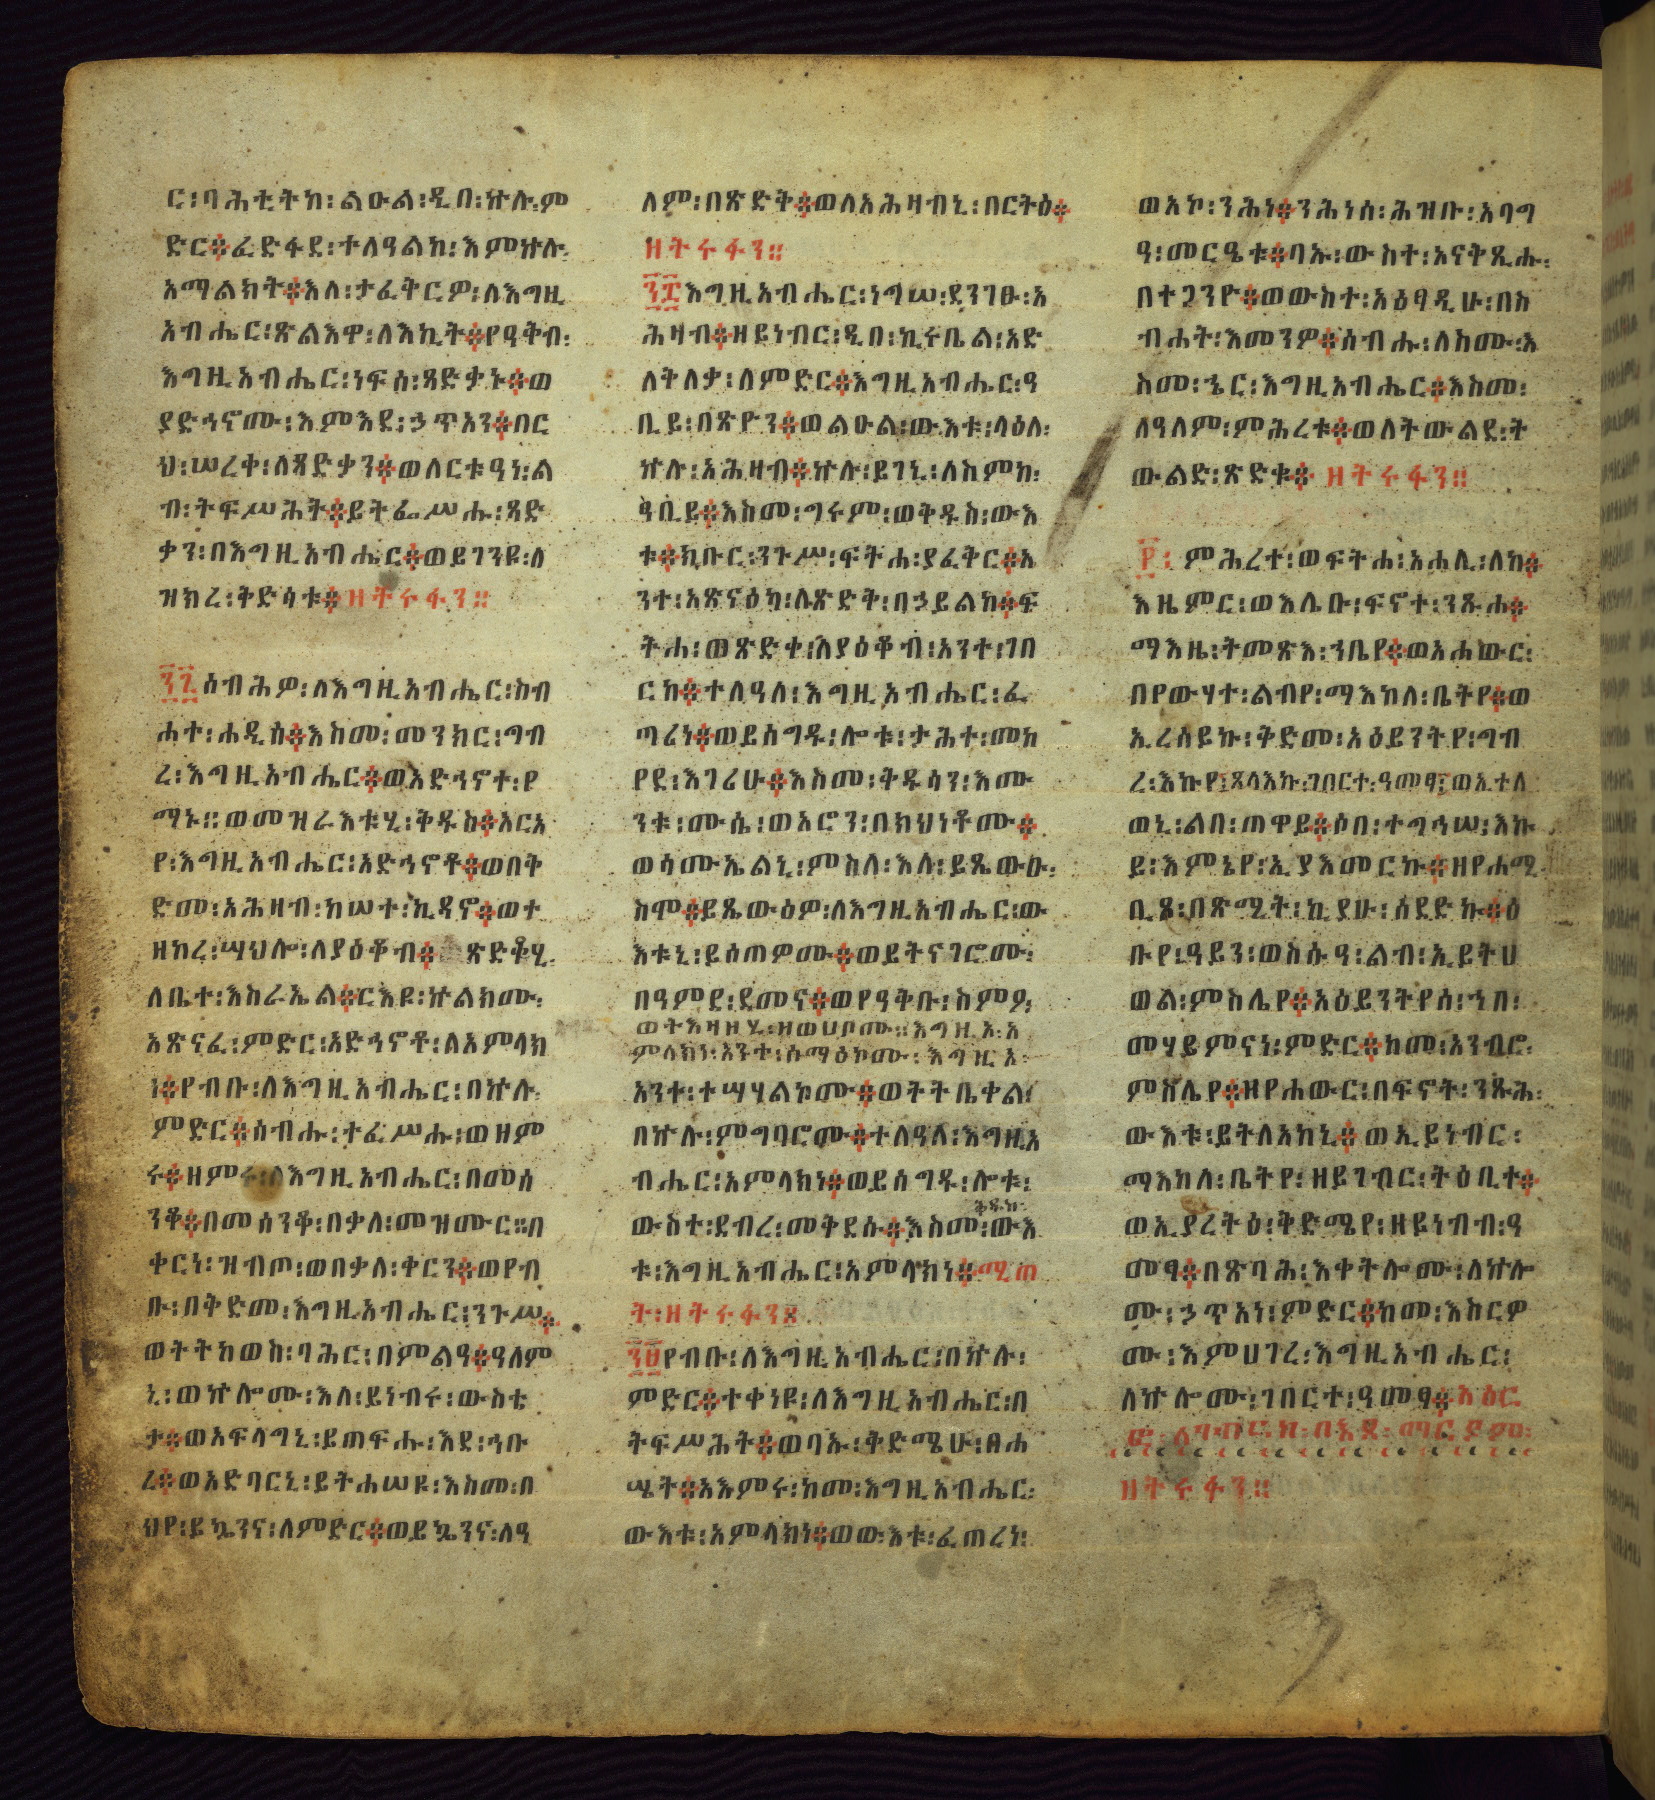 ር፡ባሕቲትከ፡ልዑል፡ዲበ፡ኵሉ፡ም
ድር፨ፈድፋደ፡ተለዓልከ፡እምኵሉ፡
አማልክት፨እለ፡ታፈቅርዎ፡ለእግዚ
አብሔር፡ጽልእዋ፡ለእኪት፨የዓቅብ፡
እግዚአብሔር፡ነፍሰ፡ጻድቃኑ፨ወ
ያድኅኖሙ፡እምእደ፡ኃጥአን፨በር
ህ፡ሠረቀ፡ለጻድቃን፨ወለርቱዓነ፡ል
ብ፡ትፍሥሕት፨ይትፌሥሑ፡ጻድ
ቃን፡በእግዚአብሔር፨ወይገንዩ፡ለ
ዝክረ፡ቅድሳቱ፨ዘትሩፋን።
፺፯ሰብሕዎ፡ለእግዚአብሔር፡ስብ
ሐተ፡ሐዲሰ፨እስመ፡መንክር፡ግብ
ረ፡እግዚአብሔር፨ወአድኅኖተ፡የ
ማኑ።ወመዝራእቱሂ፡ቅዱስ፨አርአ
የ፡እግዚአብሔር፡አድኅኖቶ፨ወበቅ
ድመ፡አሕዛብ፡ከሠተ፡ኪዳኖ፨ወተ
ዘከረ፡ሣህሎ፡ለያዕቆብ፨ጽድቆሂ፡
ለቤተ፡እስራኤል፨ርእዩ፡ኵልክሙ፡
አጽናፈ፡ምድር፡አድኅኖቶ፡ለአምላክ
ነ፨የብቡ፡ለእግዚአብሔር፡በኵሉ፡
ምድር፨ሰብሑ፡ተፈሥሑ፡ወዘም
ሩ፨ዘምሩ፡ለእግዚአብሔር፡በመሰ
ንቆ፨በመሰንቆ፡በቃለ፡መዝሙር።በ
ቀርነ፡ዝብጦ፡ወበቃለ፡ቀርን፨ወየብ
ቡ፡በቅድመ፡እግዚአብሔር፡ንጉሥ፨
ወትትከወስ፡ባሕር፡በምልዓ፨ዓለም
ኒ፡ወኵሎሙ፡እለ፡ይነብሩ፡ውስቴ
ታ፨ወአፍላግኒ፡ይጠፍሑ፡እደ፡ኅቡ
ረ፨ወአድባርኒ፡ይትሐሠዩ፡እስመ፡በ
ህየ፡ይኴንና፡ለምድር፨ወይኴንና፡ለዓ
ለም፡በጽድቅ፨ወለአሕዛብኒ፡በርትዕ፨
ዘትሩፋን።
፺፰እግዚአብሔር፡ነግሠ፡ደንገፁ፡አ
ሕዛብ፨ዘይነብር፡ዲበ፡ኪሩቤል፡አድ
ለቅለቃ፡ለምድር፨እግዚአብሔር፡ዓ
ቢይ፡በጽዮን፨ወልዑል፡ውእቱ፡ላዕለ፡
ኵሉ፡አሕዛብ፨ኵሉ፡ይገኒ፡ለስምከ፡
ዓቢይ፨እስመ፡ግሩም፡ወቅዱስ፡ውእ
ቱ፨ክቡር፡ንጉሥ፡ፍትሐ፡ያፈቅር፨አ
ንተ፡አጽናዕካ፡ለጽድቅ፡በኃይልከ፨ፍ
ትሐ፡ወጽድቀ፡ለያዕቆብ፡አንተ፡ገበ
ርከ፨ተለዓለ፡እግዚአብሔር፡ፈ
ጣሪነ፨ወይሰግዱ፡ሎቱ፡ታሕተ፡መከ
የደ፡እገሪሁ፨እስመ፡ቅዱሳን፡እሙ
ንቱ፡ሙሴ፡ወአሮን፡በክህነቶሙ፨
ወሳሙኤልኒ፡ምስለ፡እለ፡ይጼውዑ፡
ስሞ፨ይጼውዕዎ፡ለእግዚአብሔር፡ው
እቱኒ፡ይሰጠዎሙ፨ወይትናገሮሙ፡
በዓምደ፡ደመና፨ወየዓቅቡ፡ስምዖ፡
ወትእዛዘሂ፡ዘወሀቦሙ።እግዚአ፡አ
ምላክነ፡አንተ፡ሰማዕኮሙ፡እግዚአ፡
አንተ፡ተሣሃልኮሙ፨ወትትቤቀል፡
በኵሉ፡ምግባሮሙ፨ተለዓለ፡እግዚአ
ብሔር፡አምላክነ፨ወይሰግዱ፡ሎቱ፡
ቅዱስ፡
ውስተ፡ደብረ፡መቅደሱ፨እስመ፡ውእ
ቱ፡እግዚአብሔር፡አምላክነ፨ሚጠ
ት፡ዘትሩፋን፨
፺፱የብቡ፡ለእግዚአብሔር፡በኵሉ፡
ምድር፨ተቀነዩ፡ለእግዚአብሔር፡በ
ትፍሥሕት፨ወባኡ፡ቅድሜሁ፡በሐ
ሤት፨አእምሩ፡ከመ፡እግዚአብሔር፡
ውእቱ፡አምላክነ፨ወውእቱ፡ፈጠረነ፡
ወአኮ፡ንሕነ፨ንሕነሰ፡ሕዝቡ፡አባግ
ዓ፡መርዔቱ፨ባኡ፡ውስተ፡አናቅጺሁ፡
በተጋንዮ፨ወውስተ፡አዕፃዲሁ፡በአ
ብሐት፡እመንዎ፨ሰብሑ፡ለስሙ፡እ
ስመ፡ኄር፡እግዚአብሔር፨እስመ፡
ለዓለም፡ምሕረቱ፨ወለትውልደ፡ት
ውልድ፡ጽድቁ፨ዘትሩፋን።
፻፡ምሕረተ፡ወፍትሐ፡አሐሊ፡ለከ፨
እዜምር፡ወእሌቡ፡ፍኖተ፡ንጹሐ፨
ማእዜ፡ትመጽእ፡ኀቤየ፨ወአሐውር፡
በየውሃተ፡ልብየ፡ማእከለ፡ቤትየ፨ወ
ኢረሰይኩ፡ቅድመ፡አዕይንትየ፡ግብ
ረ፡እኩየ፤ጸላእኩ፡ገበርተ፡ዓመፃ፤ወኢተለ
ወኒ፡ልብ፡ጠዋይ፨ሶበ፡ተግኅሠ፡እኩ
ይ፡እምኔየ፡ኢያእመርኩ፨ዘየሐሚ
ቢጾ፡በጽሚት፡ኪያሁ፡ሰደድኩ፨ዕ
ቡየ፡ዓይን፡ወስሱዓ፡ልብ፡ኢይትሀ
ወል፡ምስሌየ፨አዕይንትየሰ፡ኀበ፡
መሃይምናነ፡ምድር፨ከመ፡አንብሮ፡
ምስሌየ፨ዘየሐውር፡በፍኖት፡ንጹሕ፡
ውእቱ፡ይትለአከኒ፨ወኢይነብር፡
ማእከለ፡ቤትየ፡ዘይገብር፡ትዕቢተ፨
ወኢያረትዕ፡ቅድሜየ፡ዘይነብብ፡ዓ
መፃ፨በጽባሕ፡እቀትሎሙ፡ለኵሎ
ሙ፡ኃጥአነ፡ምድር፨ከመ፡እስርዎ
ሙ፡እምሀገረ፡እግዚአብሔር፡
ለኵሎሙ፡ገበርተ፡ዓመፃ፨
ዘትሩፋን።